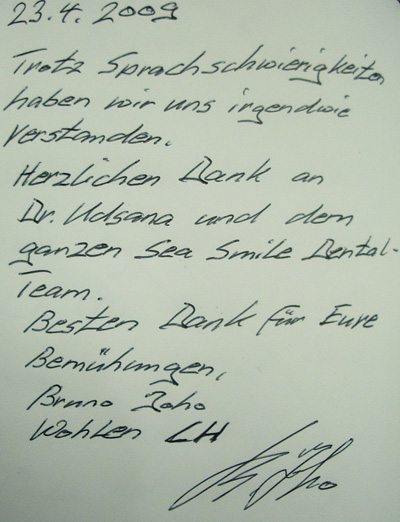 23.4.2009
Trotz Sprachschwierigkeiten
haben wir uns irgendwie
verstanden.
Herzlichen Dank an
Dr. Udsana und dem
ganzen Sea Smile Dental-
Team.
Besten Dank für Eure
Bemühungen,
Bruno Joho
Wohlen CH
B. Joho